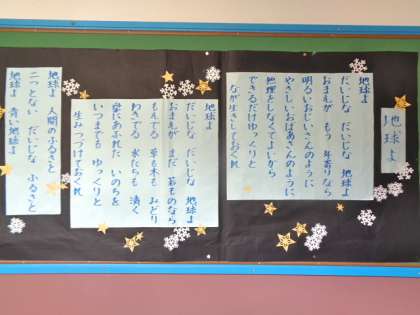 地球よ
地球よ
だいじな だいじな 地球よ
おまえが もう 年寄りなら
明るいおじいさんのように
やさしいおばあさんのように
地理をしなくてよいから
できるだけゆっくりと
ながいきしておくれ
地球よ
だいじな だいじな 地球よ
おまえが まだ 若ものなら
もえでる 草も木も みどり
わきでる 水たちも 清く
愛にあふれた いのちを
いつまでも ゆっくりと
生みつづけておくれ
地球よ 人間のふるさと
二つとない だいじな ふるさと
地球よ 青い地球よ